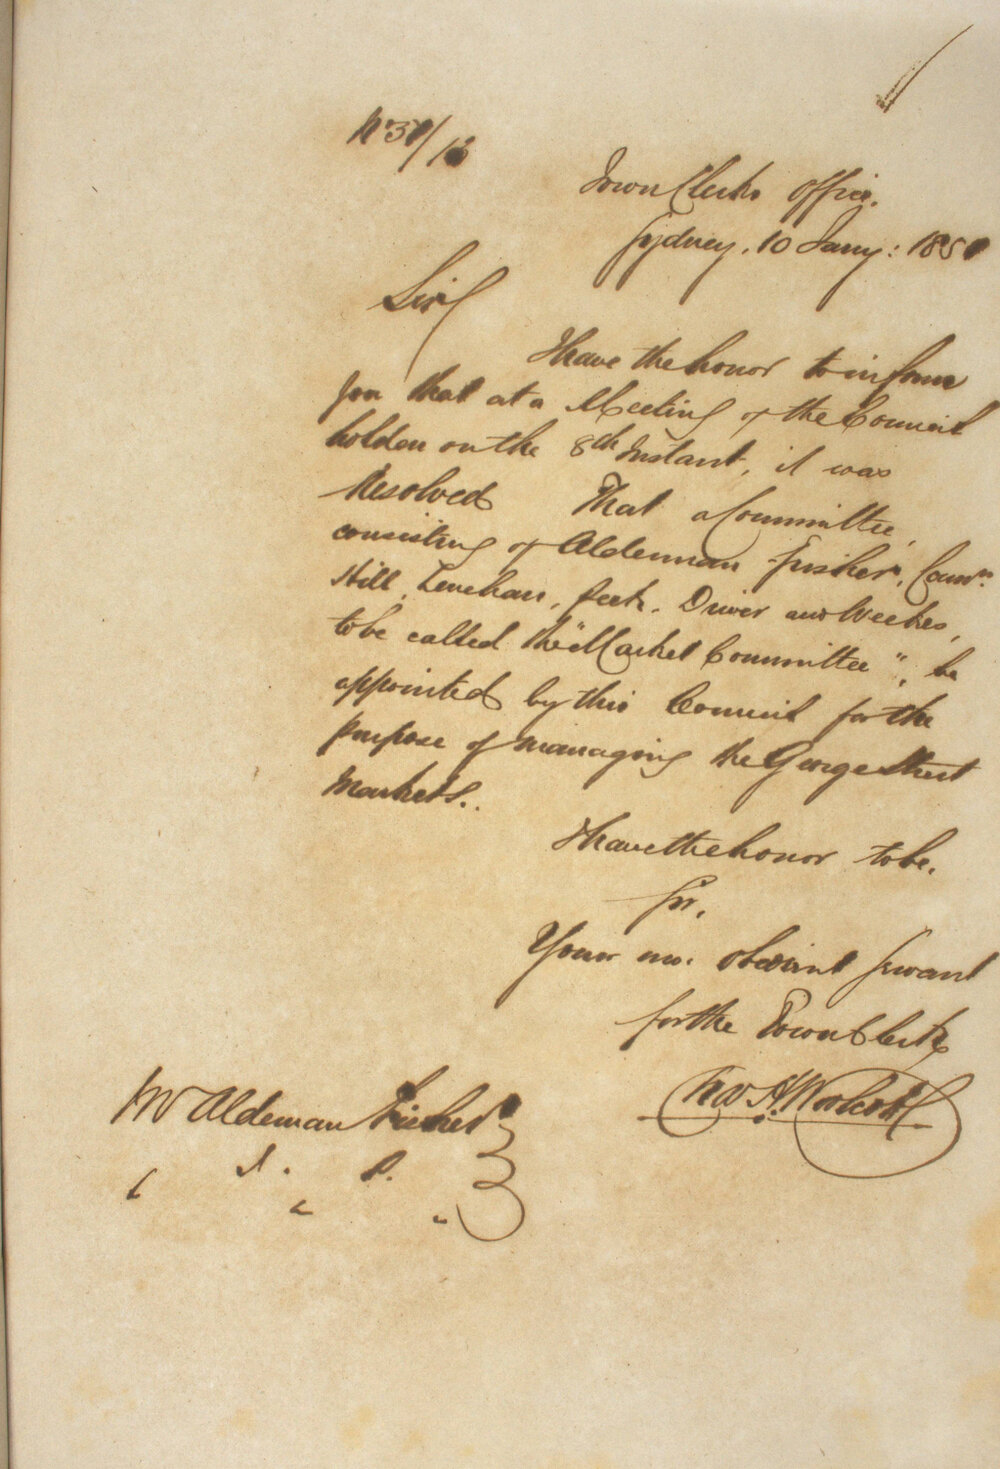 Town Clerks Office.
Sydney, 10 Jany: 1850
Sir
I have the honor to inform
you that at a Meeting of the Council
holden on the 8th Instant, it was
Resolved That a Committee,
consisting of Alderman Fisher, Counrs
Hill, Lenehan, Peek, Driver and Weekes,
to be called the "Market Committee", be
appointed by this Council for the
purpose of managing the George Street
Markets.
I have the honor to be,
Sir,
Your mo. obedient Servant
for the Town Clerk
A. Woolcott
Mr Alderman Fisher